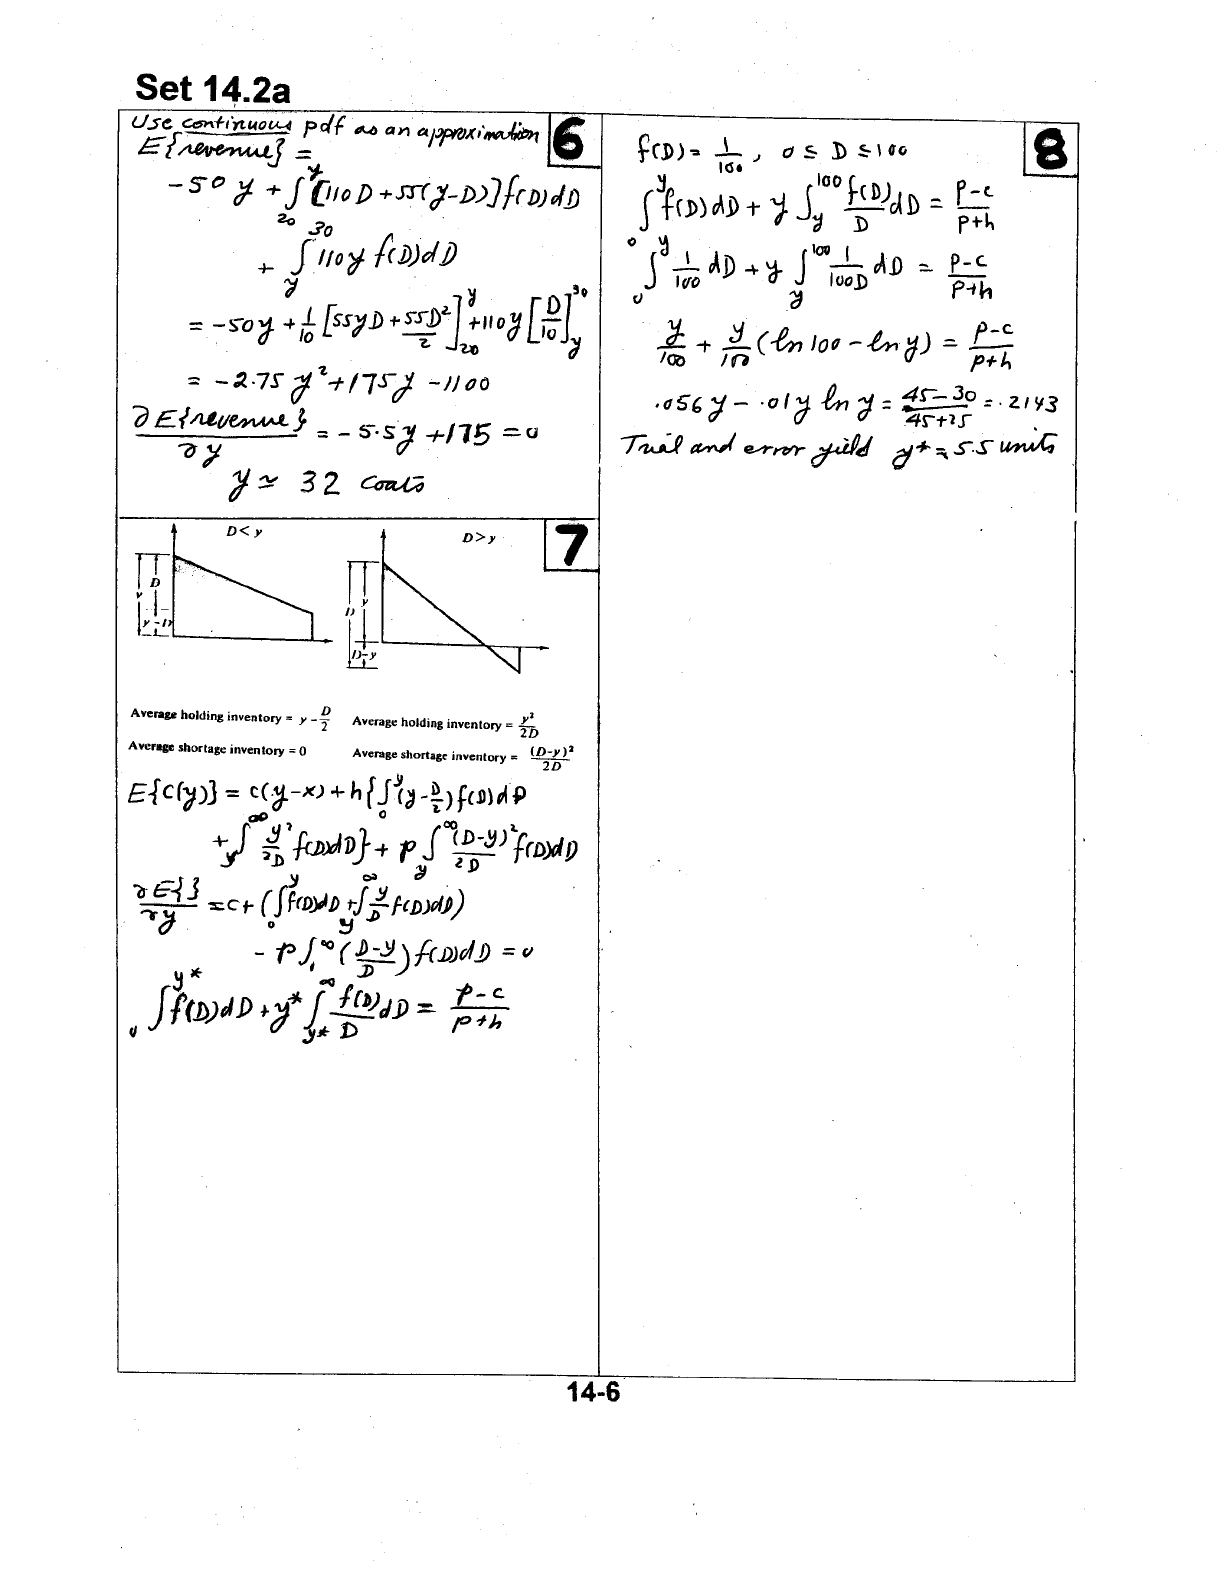 Set 14.2a
Use continuous pdf as an approximation
6
E{revenue} =
-50y + ∫_20^y [110D + 55(y-D)] f(D)dD
+ ∫_y^30 110y f(D)dD
= -50y + 1/10 [55yD + 55D²/2]_20^y + 110y [D/10]_y^30
= -2.75y² + 175y - 1100
∂E{revenue}/∂y = -5.5y + 175 = 0
y ≃ 32 coats
7
D < y
D > y
D
y
y - D
D
y
D-y
Average holding inventory = y - D/2
Average holding inventory = y²/2D
Average shortage inventory = 0
Average shortage inventory = (D-y)²/2D
E{C(y)} = c(y-x) + h{∫_0^y (y - D/2) f(D)dD
+ ∫_y^∞ y²/2D f(D)dD} + p ∫_y^∞ (D-y)²/2D f(D)dD
∂E{}/∂y = c + (∫_0^y f(D)dD + ∫_y^∞ y/D f(D)dD)
- p ∫^∞ (D-y/D) f(D)dD = 0
∫_0^y* f(D)dD + y* ∫_y*^∞ f(D)/D dD = p-c/p+h
8
f(D) = 1/100 , 0 ≤ D ≤ 100
∫_0^y f(D)dD + y ∫_y^100 f(D)/D dD = p-c/p+h
∫_0^y 1/100 dD + y ∫_y^100 1/100D dD = p-c/p+h
y/100 + y/100 (ln 100 - ln y) = p-c/p+h
.056y - .01y ln y = 45-30/45+25 = .2143
Trial and error yield y* = 5.5 units
14-6